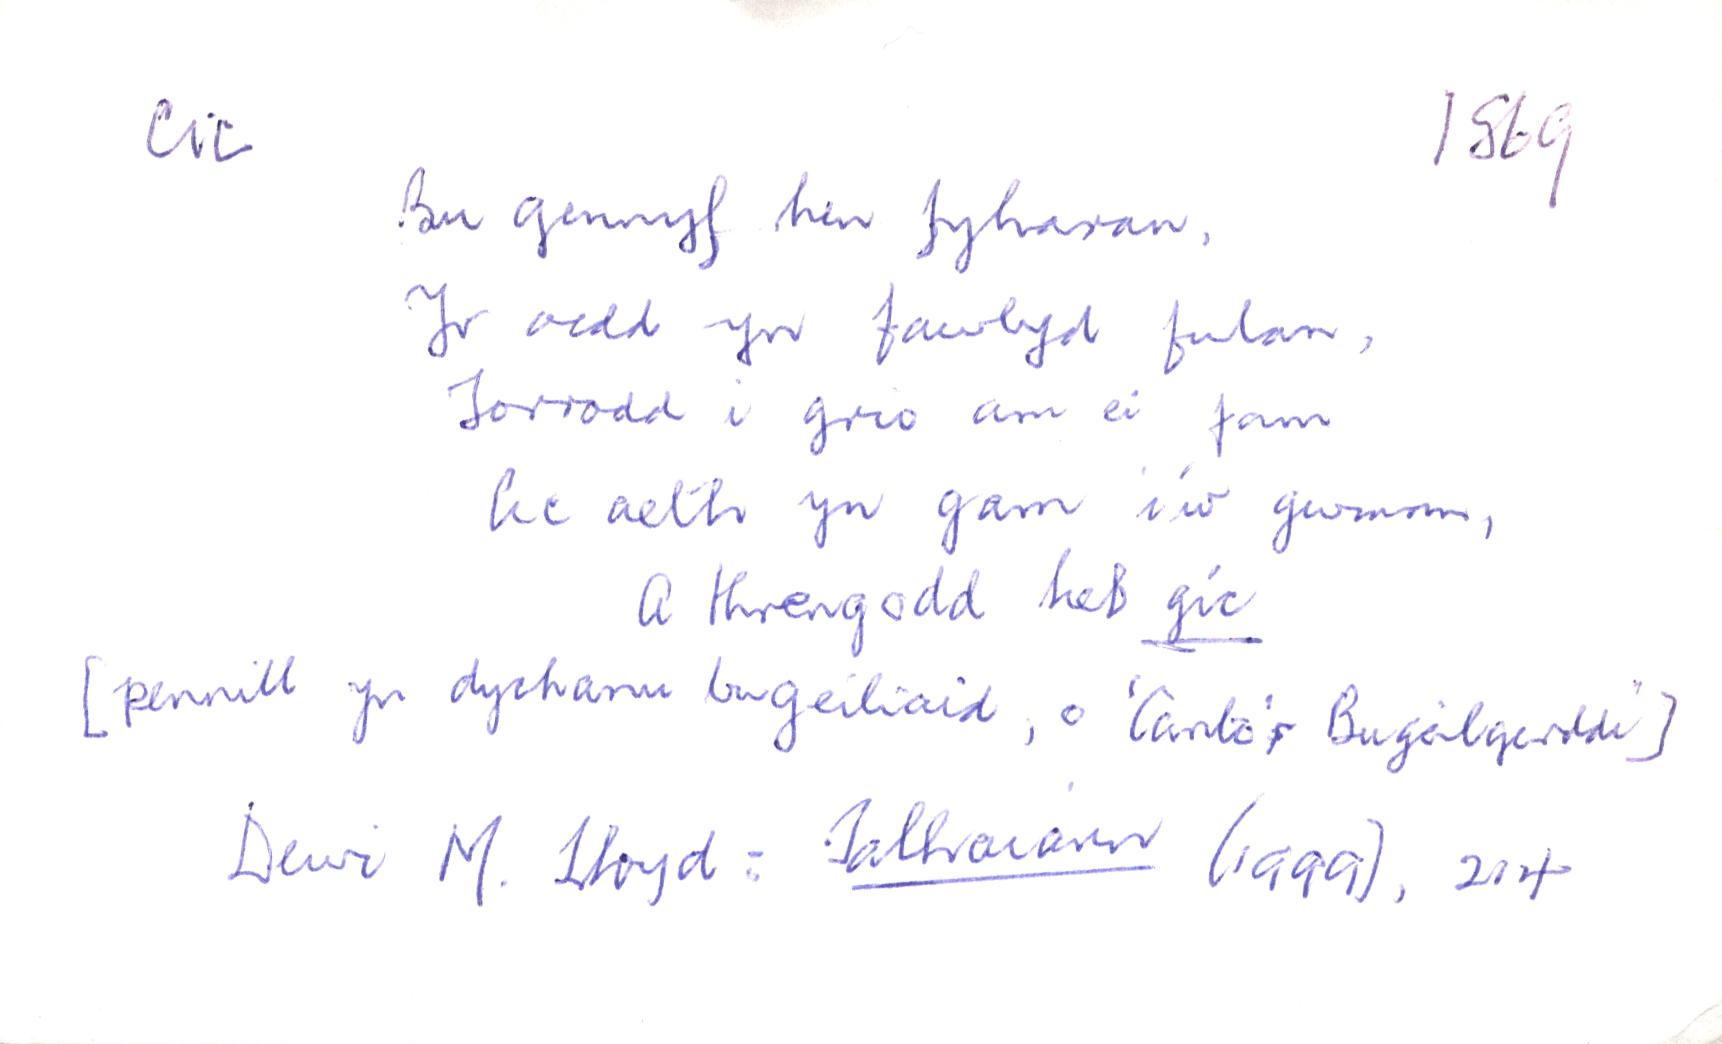 cic 1869
Bu gennyf hen fyharan,
Yr oedd yn fawlyd fulan,
Torrodd i grio am ei fam
Ac aeth yn gam i'w gwman,
A threngodd heb gic
[pennill yn dychanu bugeiliaid, o 'Cân Bugeilgerddi']
Dewi M. Lloyd: Talhaiarn (1999), 214